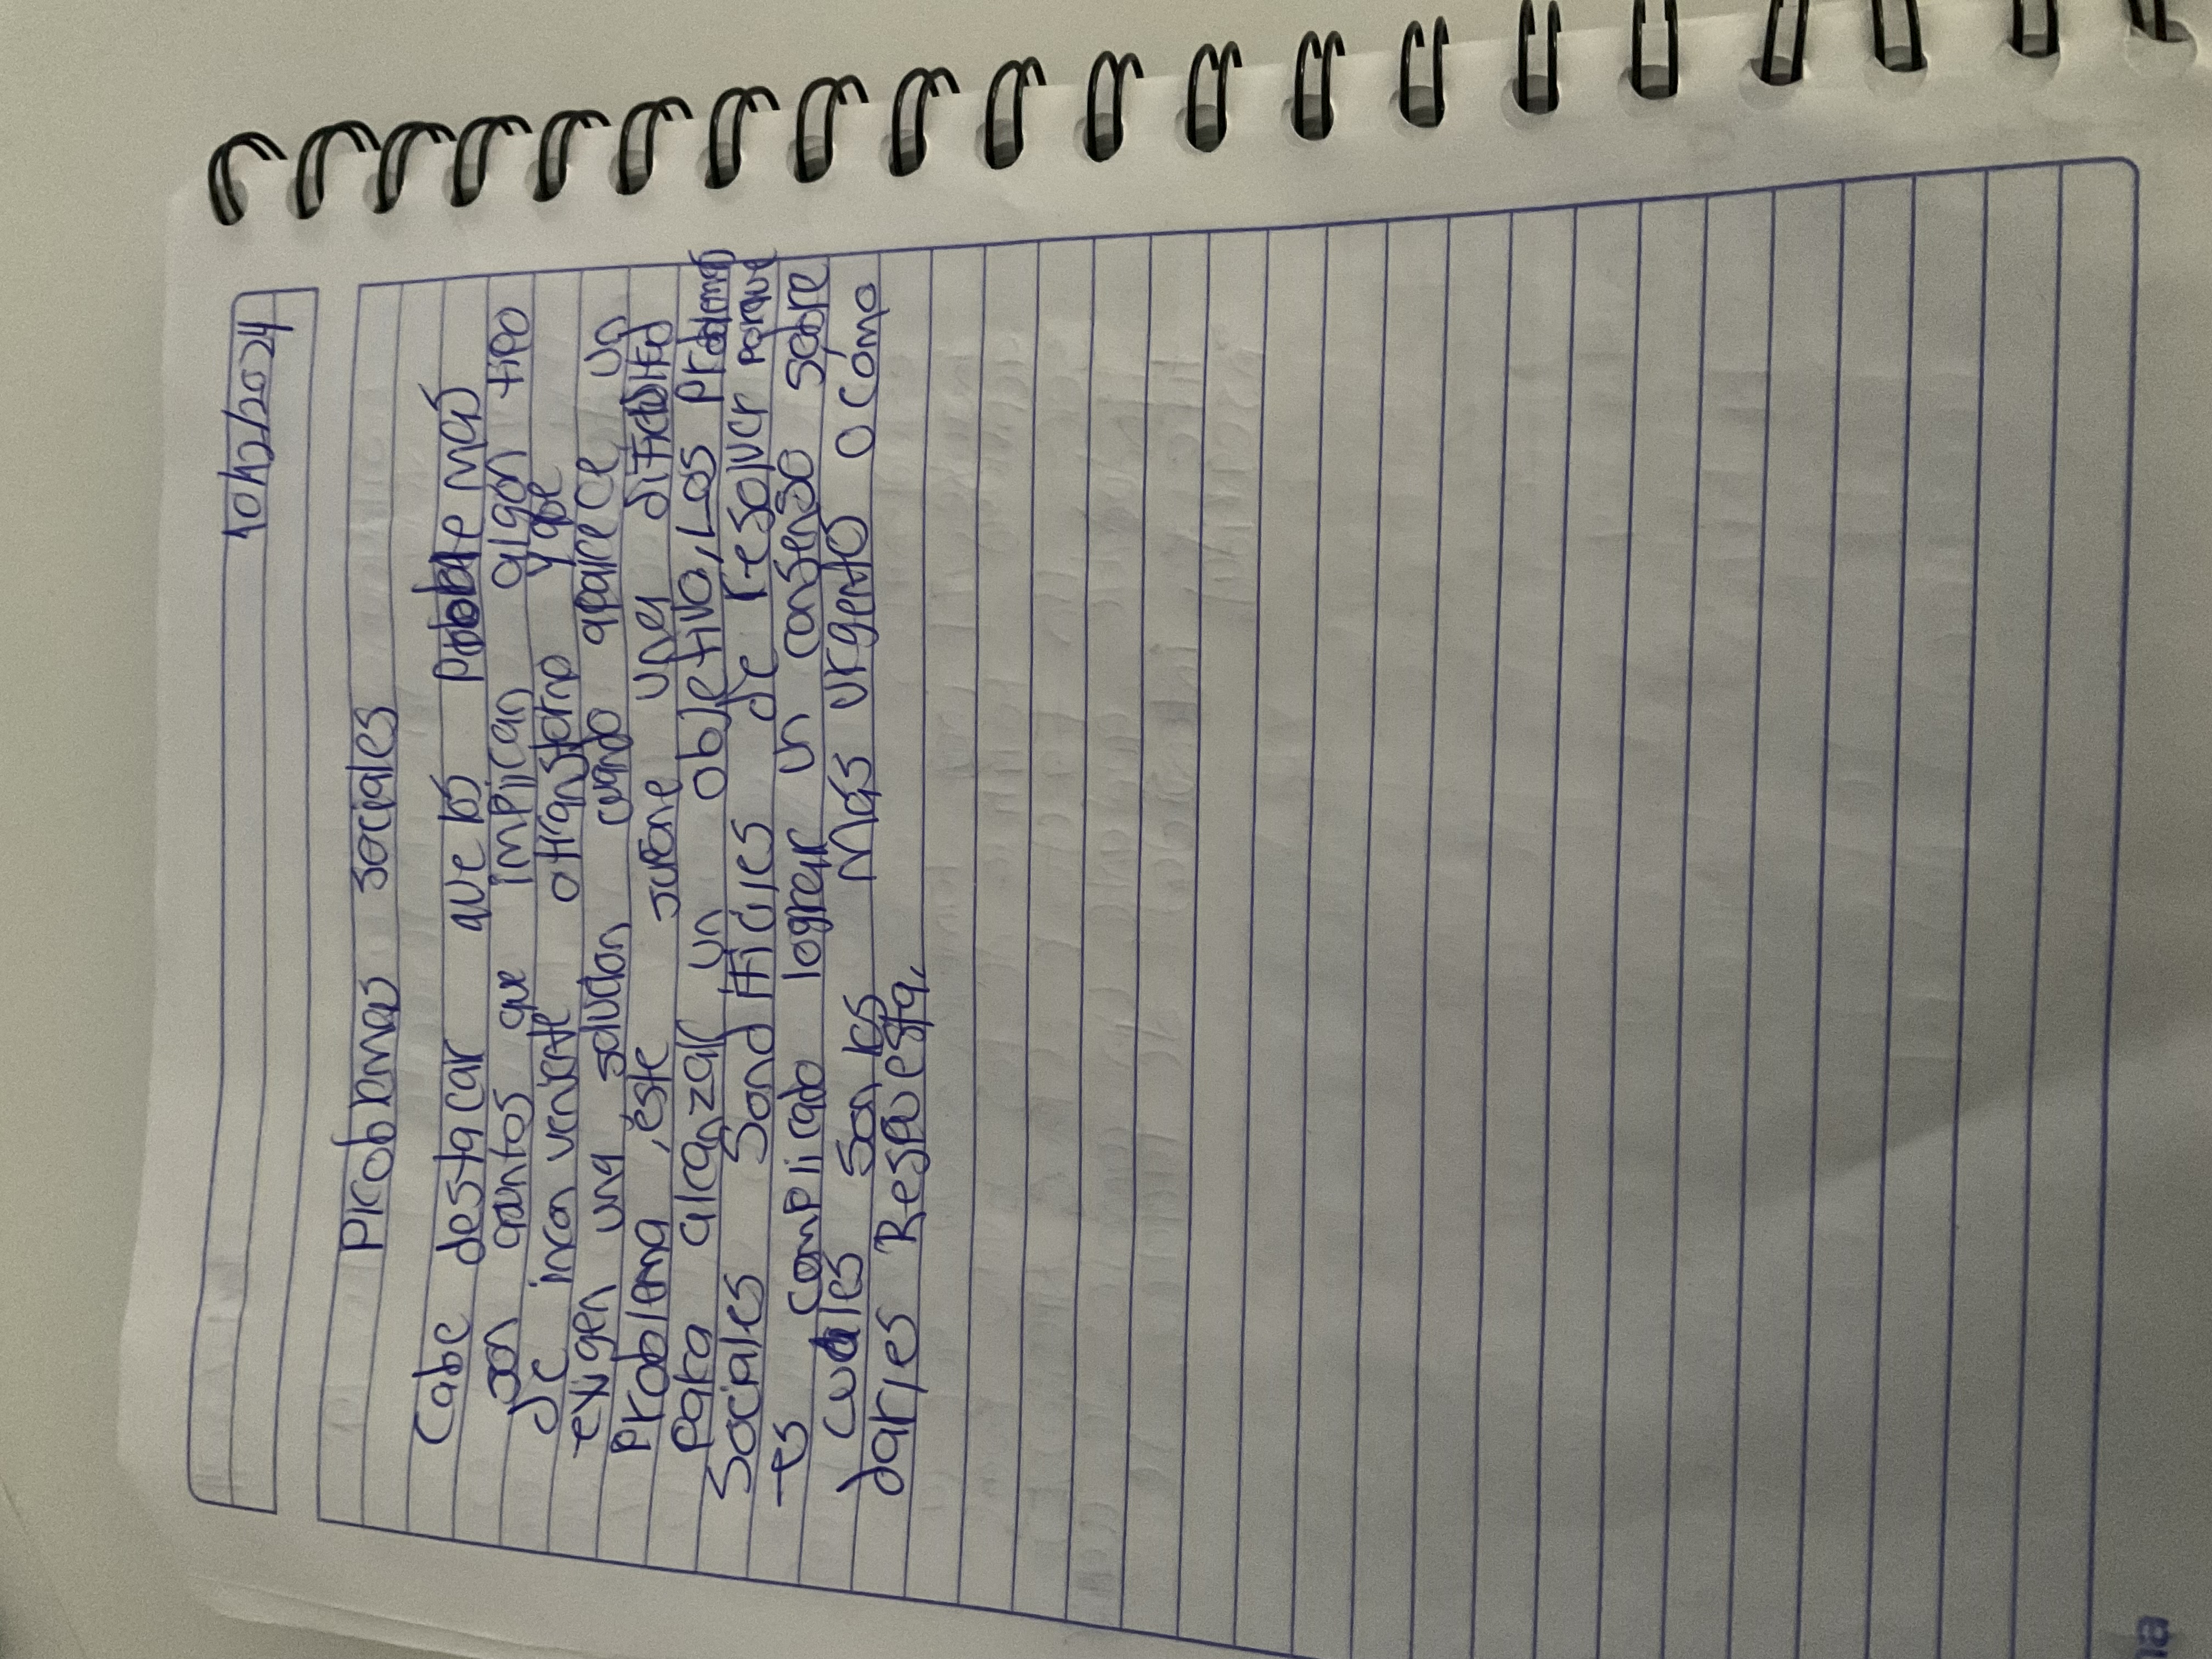 10/12/2024
Problemas sociales
Cabe destacar que los problemas
son asuntos que implican algún tipo
de inconveniente o transtorno y que
exigen una solución cuando aparece un
problema, éste supone una dificultad
para alcanzar un objetivo, Los problemas
sociales son difíciles de resolver porque
es complicado lograr un consenso sobre
cuáles son los más urgento o cómo
darles Respuesta.